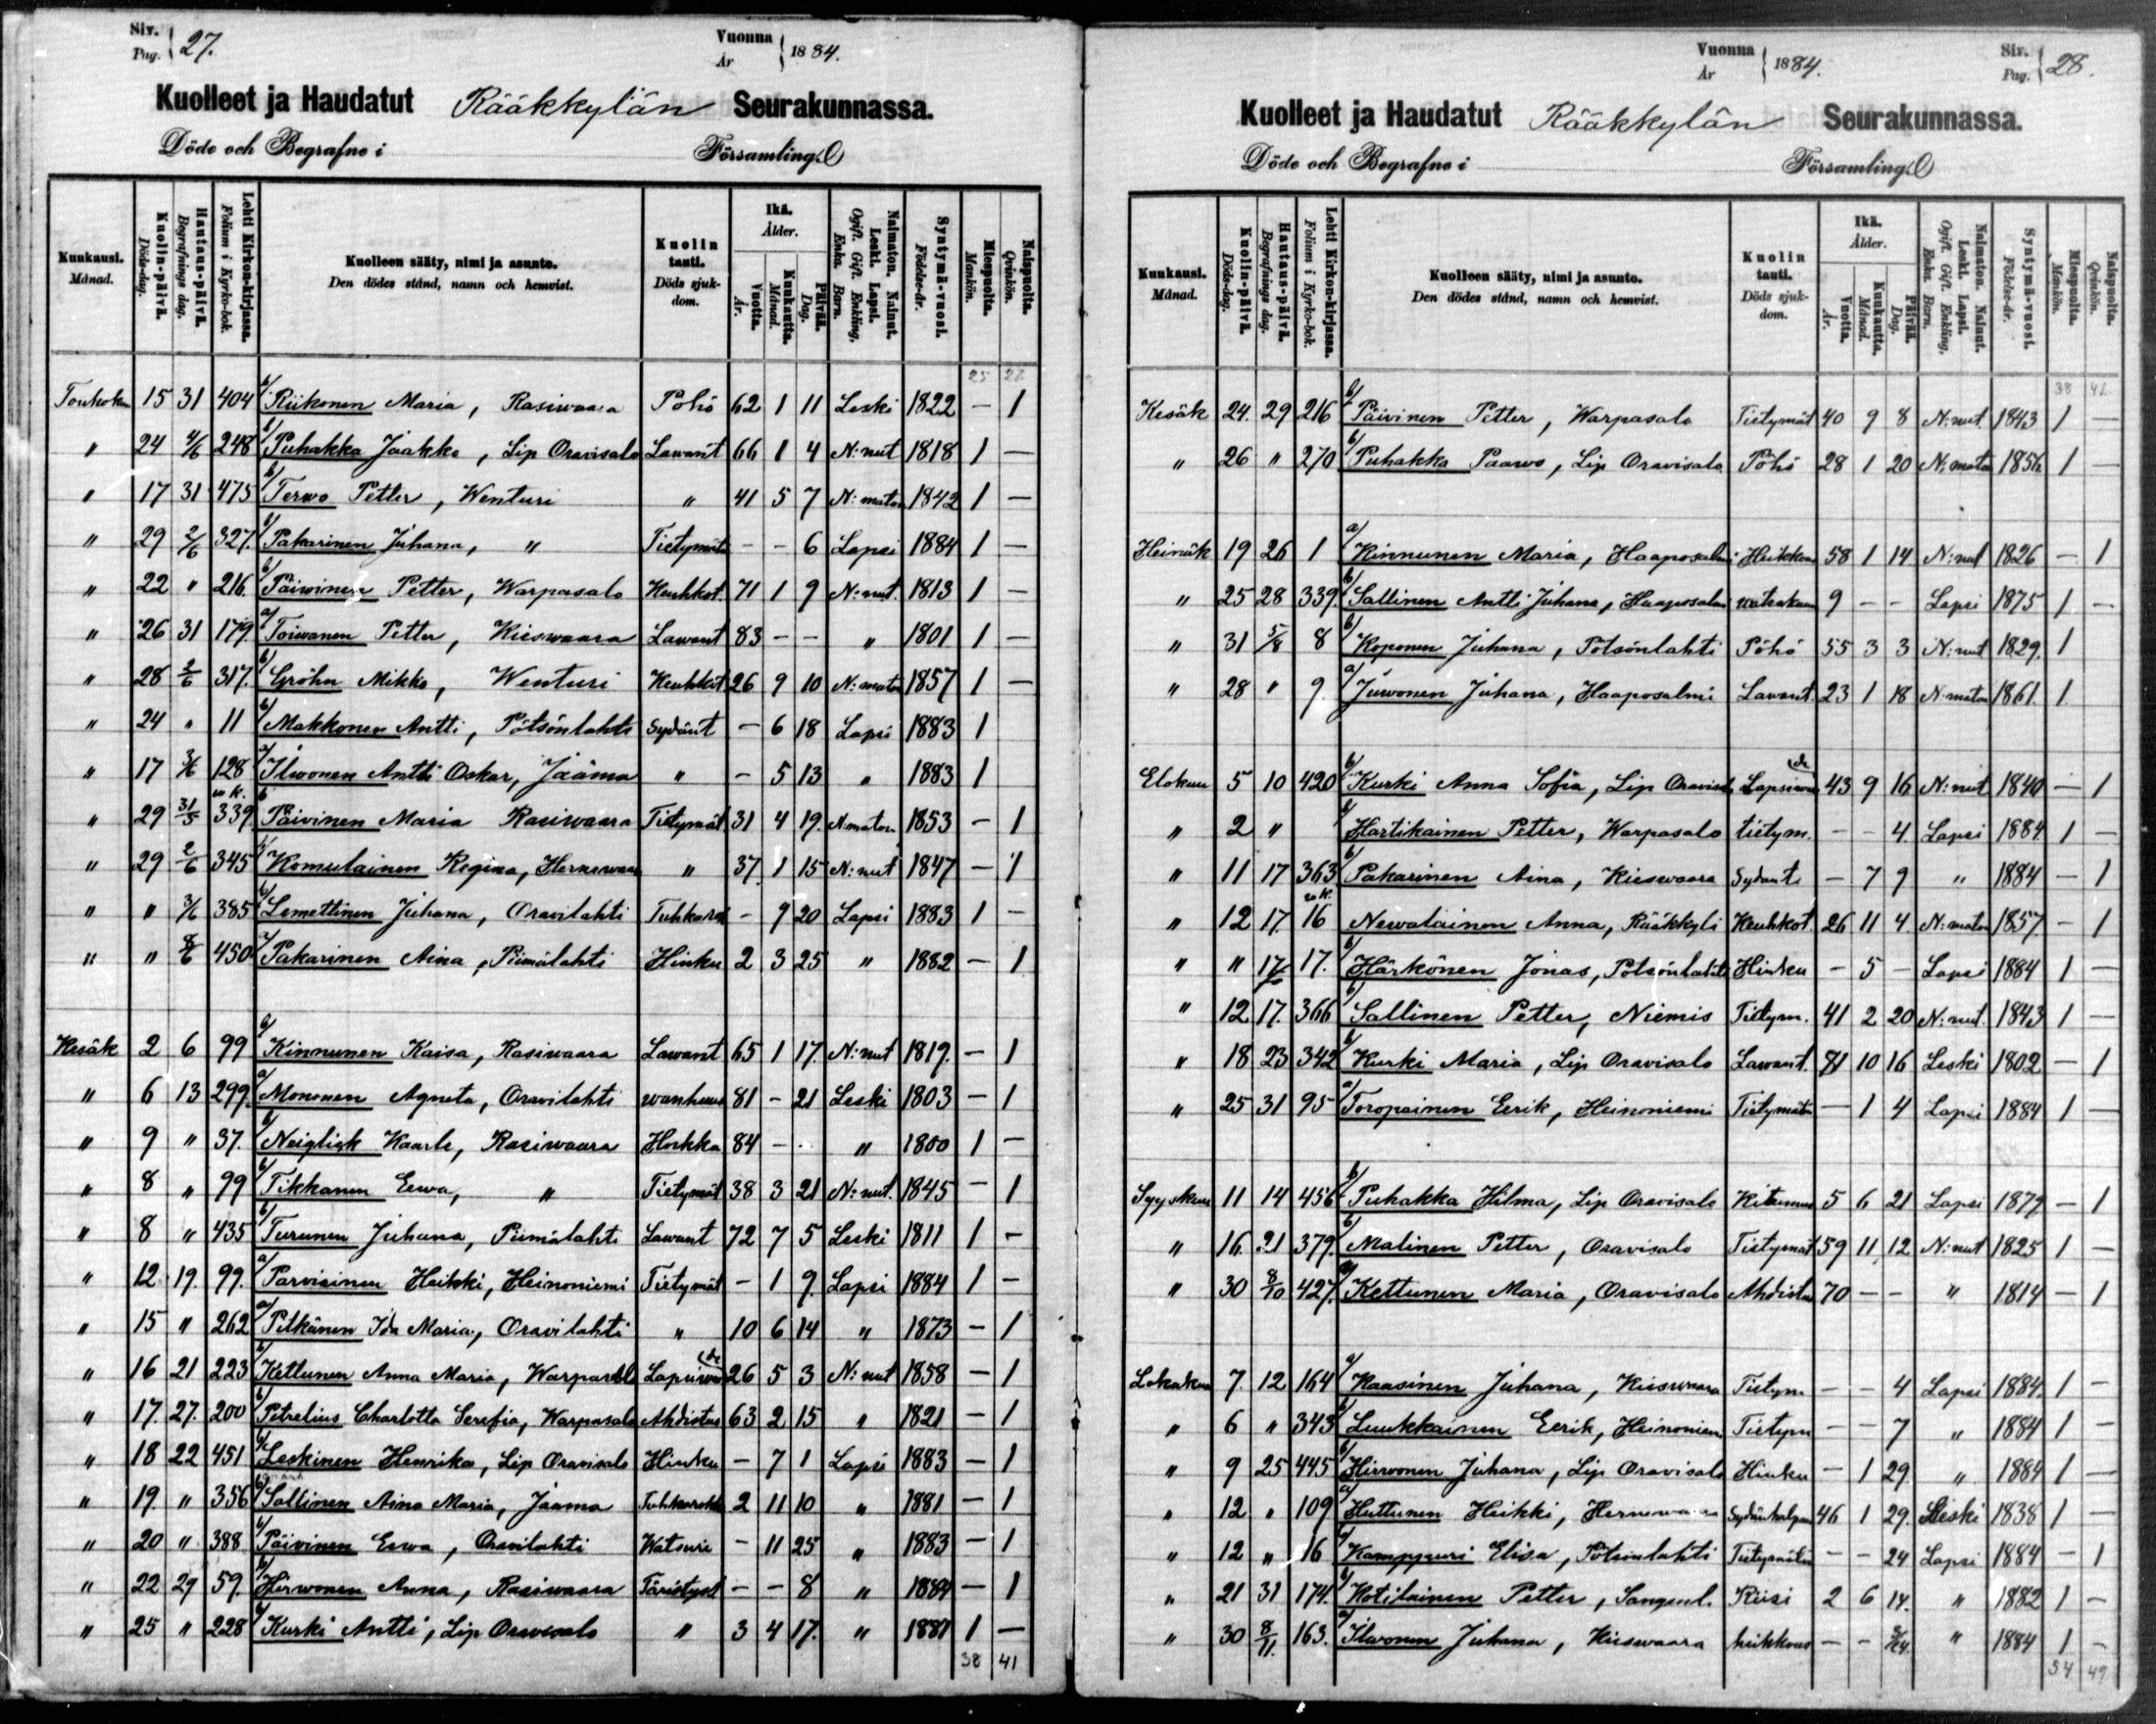 Siv. Pag. 27. Vuonna År 1884.
Kuolleet ja Haudatut Rääkkylän Seurakunnassa.
Döde och Begrafne i Församling.
Kuukausi. Månad. Kuolin-päivä. Döds-dag. Hautaus-päivä. Begrafnings dag. Lehti Kirkon-kirjassa. Folium i Kyrko-bok. Kuolleen sääty, nimi ja asunto. Den dödes stånd, namn och hemvist. Kuolin tauti. Döds sjuk-dom. Ikä. Ålder. Vuotta. År. Kuukautta. Månad. Päivää. Dag. Naimaton. Nainut. Leski. Lapsi. Ogift. Gift. Enkling. Enka. Barn. Syntymä-vuosi. Födelse-år. Miespuolta. Mankön. Naispuolta. Qvinkön.
25 27
Toukokuu 15 31 404 b/ Riikonen Maria, Rasiwaara Pöhö 62 1 11 Leski 1822 — 1
" 24 4/6 248 b/ Puhakka Jaakko, Lip Oravisalo Lawant 66 1 4 N:nut 1818 1 —
" 17 31 475 b/ Terwo Petter, Wenturi " 41 5 7 N:maton 1842 1 —
" 29 2/6 327. b/ Pakarinen Juhana, " Tietymät — — 6 Lapsi 1884 1 —
" 22 " 216. b/ Päiwinen Petter, Warpasalo Keuhkot. 71 1 9 N:nut. 1813 1 —
" 26 31 179. a/ Toiwanen Petter, Kieswaara Lawant 83 — — " 1801 1 —
" 28 2/6 317. b/ Gröhn Mikko, Wenturi Keuhkot 26 9 10 N:maton 1857 1 —
" 24 " 11 b/ Makkonen Antti, Pötsönlahti Sydänt — 6 18 Lapsi 1883 1
" 17 3/6 128 a/ Ilwonen Antti Oskar, Jaama " — 5 13 " 1883 1
" 29 31/5 339 Päivinen Maria Rasiwaara Tietymät 31 4 19. N:maton 1853 — 1
" 29 2/6 345 b/ Komulainen Regina, Hernewaara " 37 1 15 N:nut 1847 — 1
" " 3/6 385 b/ Lemettinen Juhana, Oravilahti Tuhkaro — 9 20 Lapsi 1883 1 —
" " 8/6 450 a/ Pakarinen Aina, Piimälahti Hinku 2 3 25 " 1882 — 1
Kesäk 2 6 99 b/ Kinnunen Kaisa, Rasiwaara Lawant 65 1 17. N:nut 1819. — 1
" 6 13 299. a/ Mononen Agneta, Oravilahti wanhuus 81 — 21 Leski 1803 — 1
" 9 " 37. b/ Neiglick Kaarle, Rasiwaara Horkka 84 — " 1800 1 —
" 8 " 99 b/ Tikkanen Eewa, " Tietymät 38 3 21 N:nut. 1845 — 1
" 8 " 435 b/ Turunen Juhana, Piimälahti Lawant 72 7 5 Leski 1811 1 —
" 12 19. 99. a/ Parviainen Heikki, Heinoniemi Tietymät — 1 9. Lapsi 1884 1 —
" 15 " 262 a/ Pitkänen Ida Maria, Oravilahti " 10 6 14 " 1873 — 1
" 16 21 223 b/ Kettunen Anna Maria, Warpasalo Lapsiwuode 26 5 3 N:nut 1858 — 1
" 17. 27. 200 b/ Petrelius Charlotta Serafia, Warpasalo Ahdistus 63 2 15 " 1821 — 1
" 18 22 451 b/ Leskinen Henrika, Lip Oravisalo Hinku — 7 1 Lapsi 1883 — 1
" 19. " 356 a/ Sallinen Aina Maria, Jaama Tuhkarokko 2 11 10 " 1881 — 1
" 20 " 388 b/ Päivinen Eewa, Oravilahti Watsuri — 11 25 " 1883 — 1
" 22 29 59. b/ Hirwonen Anna, Rasiwaara Täristyst — — 8 " 1884 — 1
" 25 " 228 b/ Kurki Antti, Lip Oravisalo " 3 4 17. " 1881 1 —
38 41
Vuonna År 1884. Siv. Pag. 28.
Kuolleet ja Haudatut Rääkkylän Seurakunnassa.
Döde och Begrafne i Församling.
Kuukausi. Månad. Kuolin-päivä. Döds-dag. Hautaus-päivä. Begrafnings dag. Lehti Kirkon-kirjassa. Folium i Kyrko-bok. Kuolleen sääty, nimi ja asunto. Den dödes stånd, namn och hemvist. Kuolin tauti. Döds sjuk-dom. Ikä. Ålder. Vuotta. År. Kuukautta. Månad. Päivää. Dag. Naimaton. Nainut. Leski. Lapsi. Ogift. Gift. Enkling. Enka. Barn. Syntymä-vuosi. Födelse-år. Miespuolta. Mankön. Naispuolta. Qvinkön.
38 41
Kesäk 24. 29 216 b/ Päivinen Petter, Warpasalo Tietymät 40 9 8 N:nut. 1843 1 —
" 26 " 270 b/ Puhakka Paawo, Lip Oravisalo Pöhö 28 1 20 N:maton 1856 1 —
Heinäk 19 26 1 a/ Kinnunen Maria, Haaposalmi Heikkous 58 1 14 N:nut 1826 — 1
" 25 28 339. b/ Sallinen Antti Juhana, Haaposalmi 9 — — Lapsi 1875 1 —
" 31 5/8 8 b/ Koponen Juhana, Pötsönlahti Pöhö 55 3 3 N:nut 1829. 1
" 28 " 9 a/ Juwonen Juhana, Haaposalmi Lawant. 23 1 18 N:maton 1861. 1
Elokuu 5 10 420 b/ Kurki Anna Sofia, Lip Oravisalo Lapsiwuode 43 9 16 N:nut 1840 — 1
" 2 " b/ Hartikainen Petter, Warpasalo tietym. — — 4. Lapsi 1884. 1 —
" 11 17 363 b/ Pakarinen Aina, Kieswaara Sydant. — 7 9 " 1884 — 1
" 12 17. 16 Newalainen Anna, Rääkkylä Keuhkot. 26 11 4. N:maton 1857. — 1
" " 17 17. b/ Härkönen Jonas, Pötsönlahti Hinku — 5 — Lapsi 1884 1 —
" 12 17. 366 b/ Sallinen Petter, Niemis Tietym. 41 2 20 N:nut. 1843 1 —
" 18 23 342 b/ Kurki Maria, Lip Oravisalo Lawant. 81 10 16 Leski 1802 — 1
" 25 31 95 a/ Toropainen Eerik, Heinoniemi Tietymätön — 1 4 Lapsi 1884 1 —
Syyskuu 11 14 456 b/ Puhakka Hilma, Lip Oravisalo 5 6 21 Lapsi 1879 — 1
" 16. 21 379. b/ Malinen Petter, Oravisalo Tietymät 59 11 12 N:nut 1825 1 —
" 30 8/10 427. a/ Kettunen Maria, Oravisalo Ahdistus 70 — — " 1814 — 1
Lokakuu 7. 12 164 a/ Kaasinen Juhana, Kieswaara Tietym — — 4 Lapsi 1884 1 —
" 6 " 343 b/ Luukkainen Eerik, Heinoniemi Tietym — — 7 " 1884 1 —
" 9 25 445 b/ Hirwonen Juhana, Lip Oravisalo Hinku — 1 29. " 1884 1 —
" 12 " 109 a/ Huttunen Heikki, Hernewaara Sydänhalpaus 46 1 29. Leski 1838 1 —
" 12 " 16 a/ Kamppuri Elisa, Pötsönlahti Tietymätön — — 24 Lapsi 1884 — 1
" 21 31 174. b/ Kotilainen Petter, Sangenl. Riisi 2 6 14. " 1882 1 —
" 30 8/11. 163. a/ Ilwonen Juhana, Kieswaara heikkous — — 3/24. " 1884 1 —
54 49